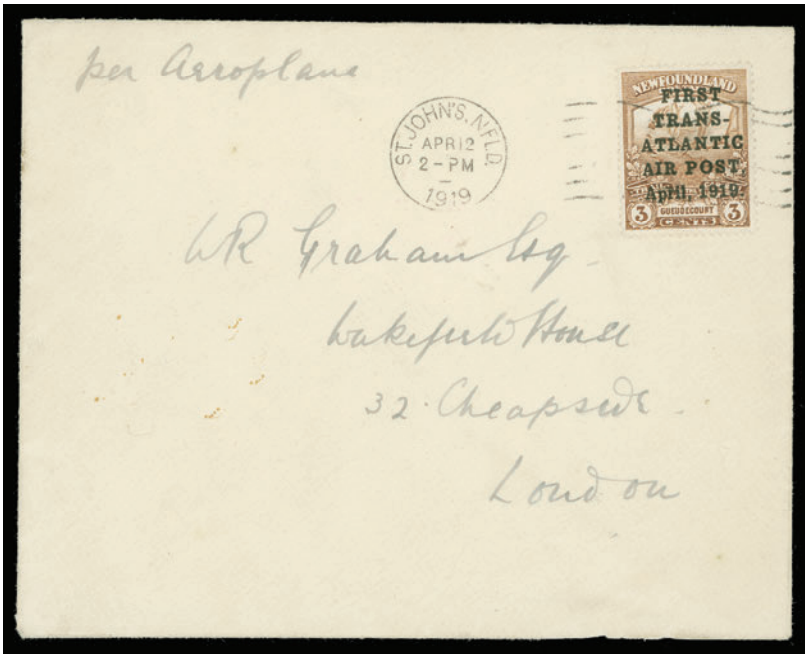 per Aeroplane
ST. JOHN'S, NFLD.
APR 12
2 - PM
1919
NEWFOUNDLAND
FIRST
TRANS-
ATLANTIC
AIR POST,
April, 1919.
3 GUEUDECOURT 3
CENTS
WR Graham Esq
Wakefield House
32. Cheapside.
London